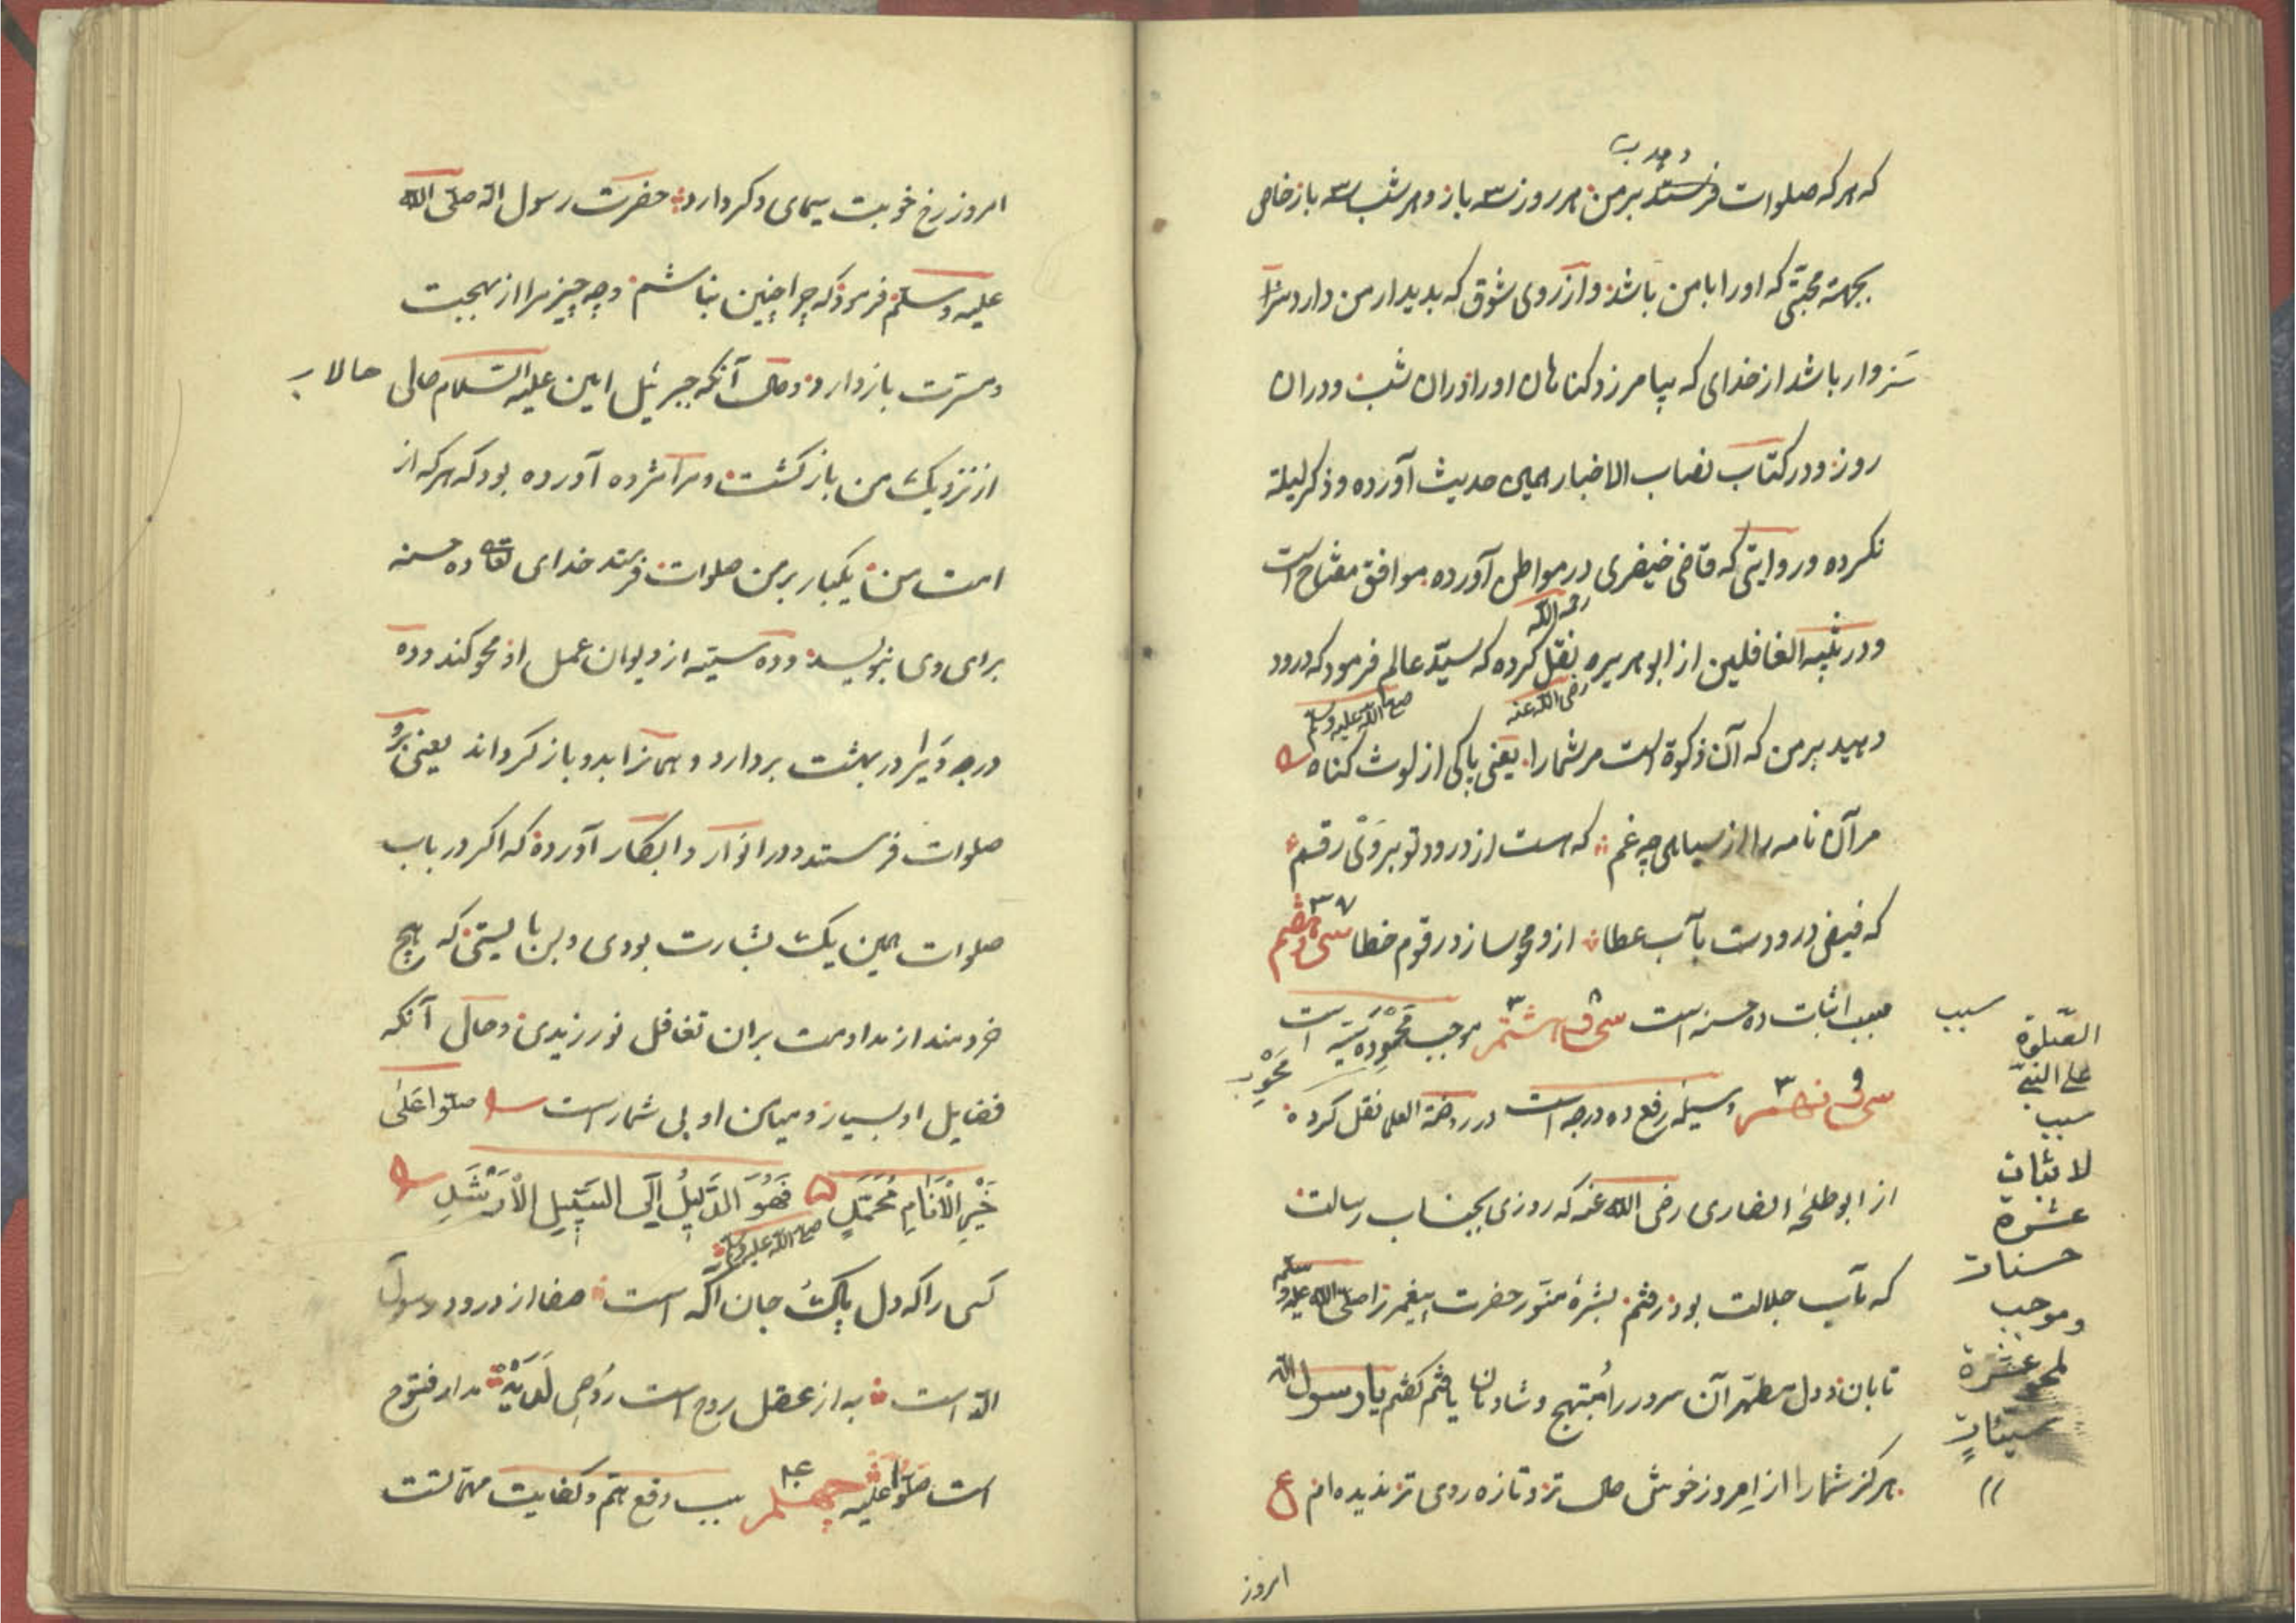 که هر که صلوات فرستد بر من هر روز سه بار و هر شب سه بار خاص
بجهة محبتی که او را با من باشد و از روی شوق که بدیدار من دارد
سزاوار باشد از خدای که بیامرزد کناهان او را در ان شب و در ان
روز و در کتاب نصاب الاخبار همین حدیث آورده و ذکر لیلة
نکرده و روایتی که قاضی خیضری در مواطن آورده موافق مفتاح است
رحمه الله
و در تنبیه الغافلین از ابو هریره نقل کرده که سید عالم فرمود که درود
رضی الله عنه صلی الله علیه وسلم
دهید بر من که آن زکوة است مر شما را یعنی پاکی از لوث کناه
مر آن نامه را از سیاهی چه غم که هست از درود تو بر وی رقم
که فیض درودت بآب عطا از و محو سازد رقوم خطا سی و هفتم ۳۷
سبب اثبات ده حسنه است سی و هشتم موجب محو ده سیئه است
سی و نهم وسیله رفع ده درجه است در روضة العلما نقل کرده
از ابو طلحه انصاری رضی الله عنه که روزی بجناب رسالت
که مآب جلالت بود رفتم بشرهٔ منور حضرت پیغمبر را صلی الله علیه وسلم
تابان و دل مطهر آن سرور را مبتهج و شادمان یافتم کفتم یا رسول الله
هرکز شما را از امروز خوش حال تر و تازه روی تر ندیده ام ع
امروز
سبب
الصلوة
علی النبی
سبب
لاثبات
عشرة
حسنات
وموجب
لمحو عشرة
سیئات
امروز رخ خوبت سیمای دکر دارد حضرت رسول الله صلی الله
علیه وسلم فرمود که چرا چنین نباشم و چه چیز مرا از بهجت
و مسرت باز دارد و حال آنکه جبرئیل امین علیه السلام حالی حالا
از نزدیک من باز کشت و مرا مژده آورده بود که هر که از
امت من یکبار بر من صلوات فرستد خدای تعالی ده حسنه
برای وی بنویسد و ده سیئه از دیوان عمل او محو کند و ده
درجه ویرا در بهشت بردارد و همانرا بدو باز کرداند یعنی برو
صلوات فرستد و در انوار و ابکار آورده که اکر در باب
صلوات همین یک بشارت بودی و بس بایستی که هیچ
خردمند از مداومت بران تغافل نورزیدی و حال آنکه
فضایل او بسیار و میامن او بی شمار است صلوا علی
خیر الانام محمد فهو الدلیل الی السبیل الارشد
صلی الله علیه وسلم
کسی را که دل پاک جان آکه است صفا از درود رسول
الله است به از عقل روح است روحی لدیه مدار فتوح
است صلوا علیه چهلم ۴۰ سبب دفع هم و کفایت مهمات